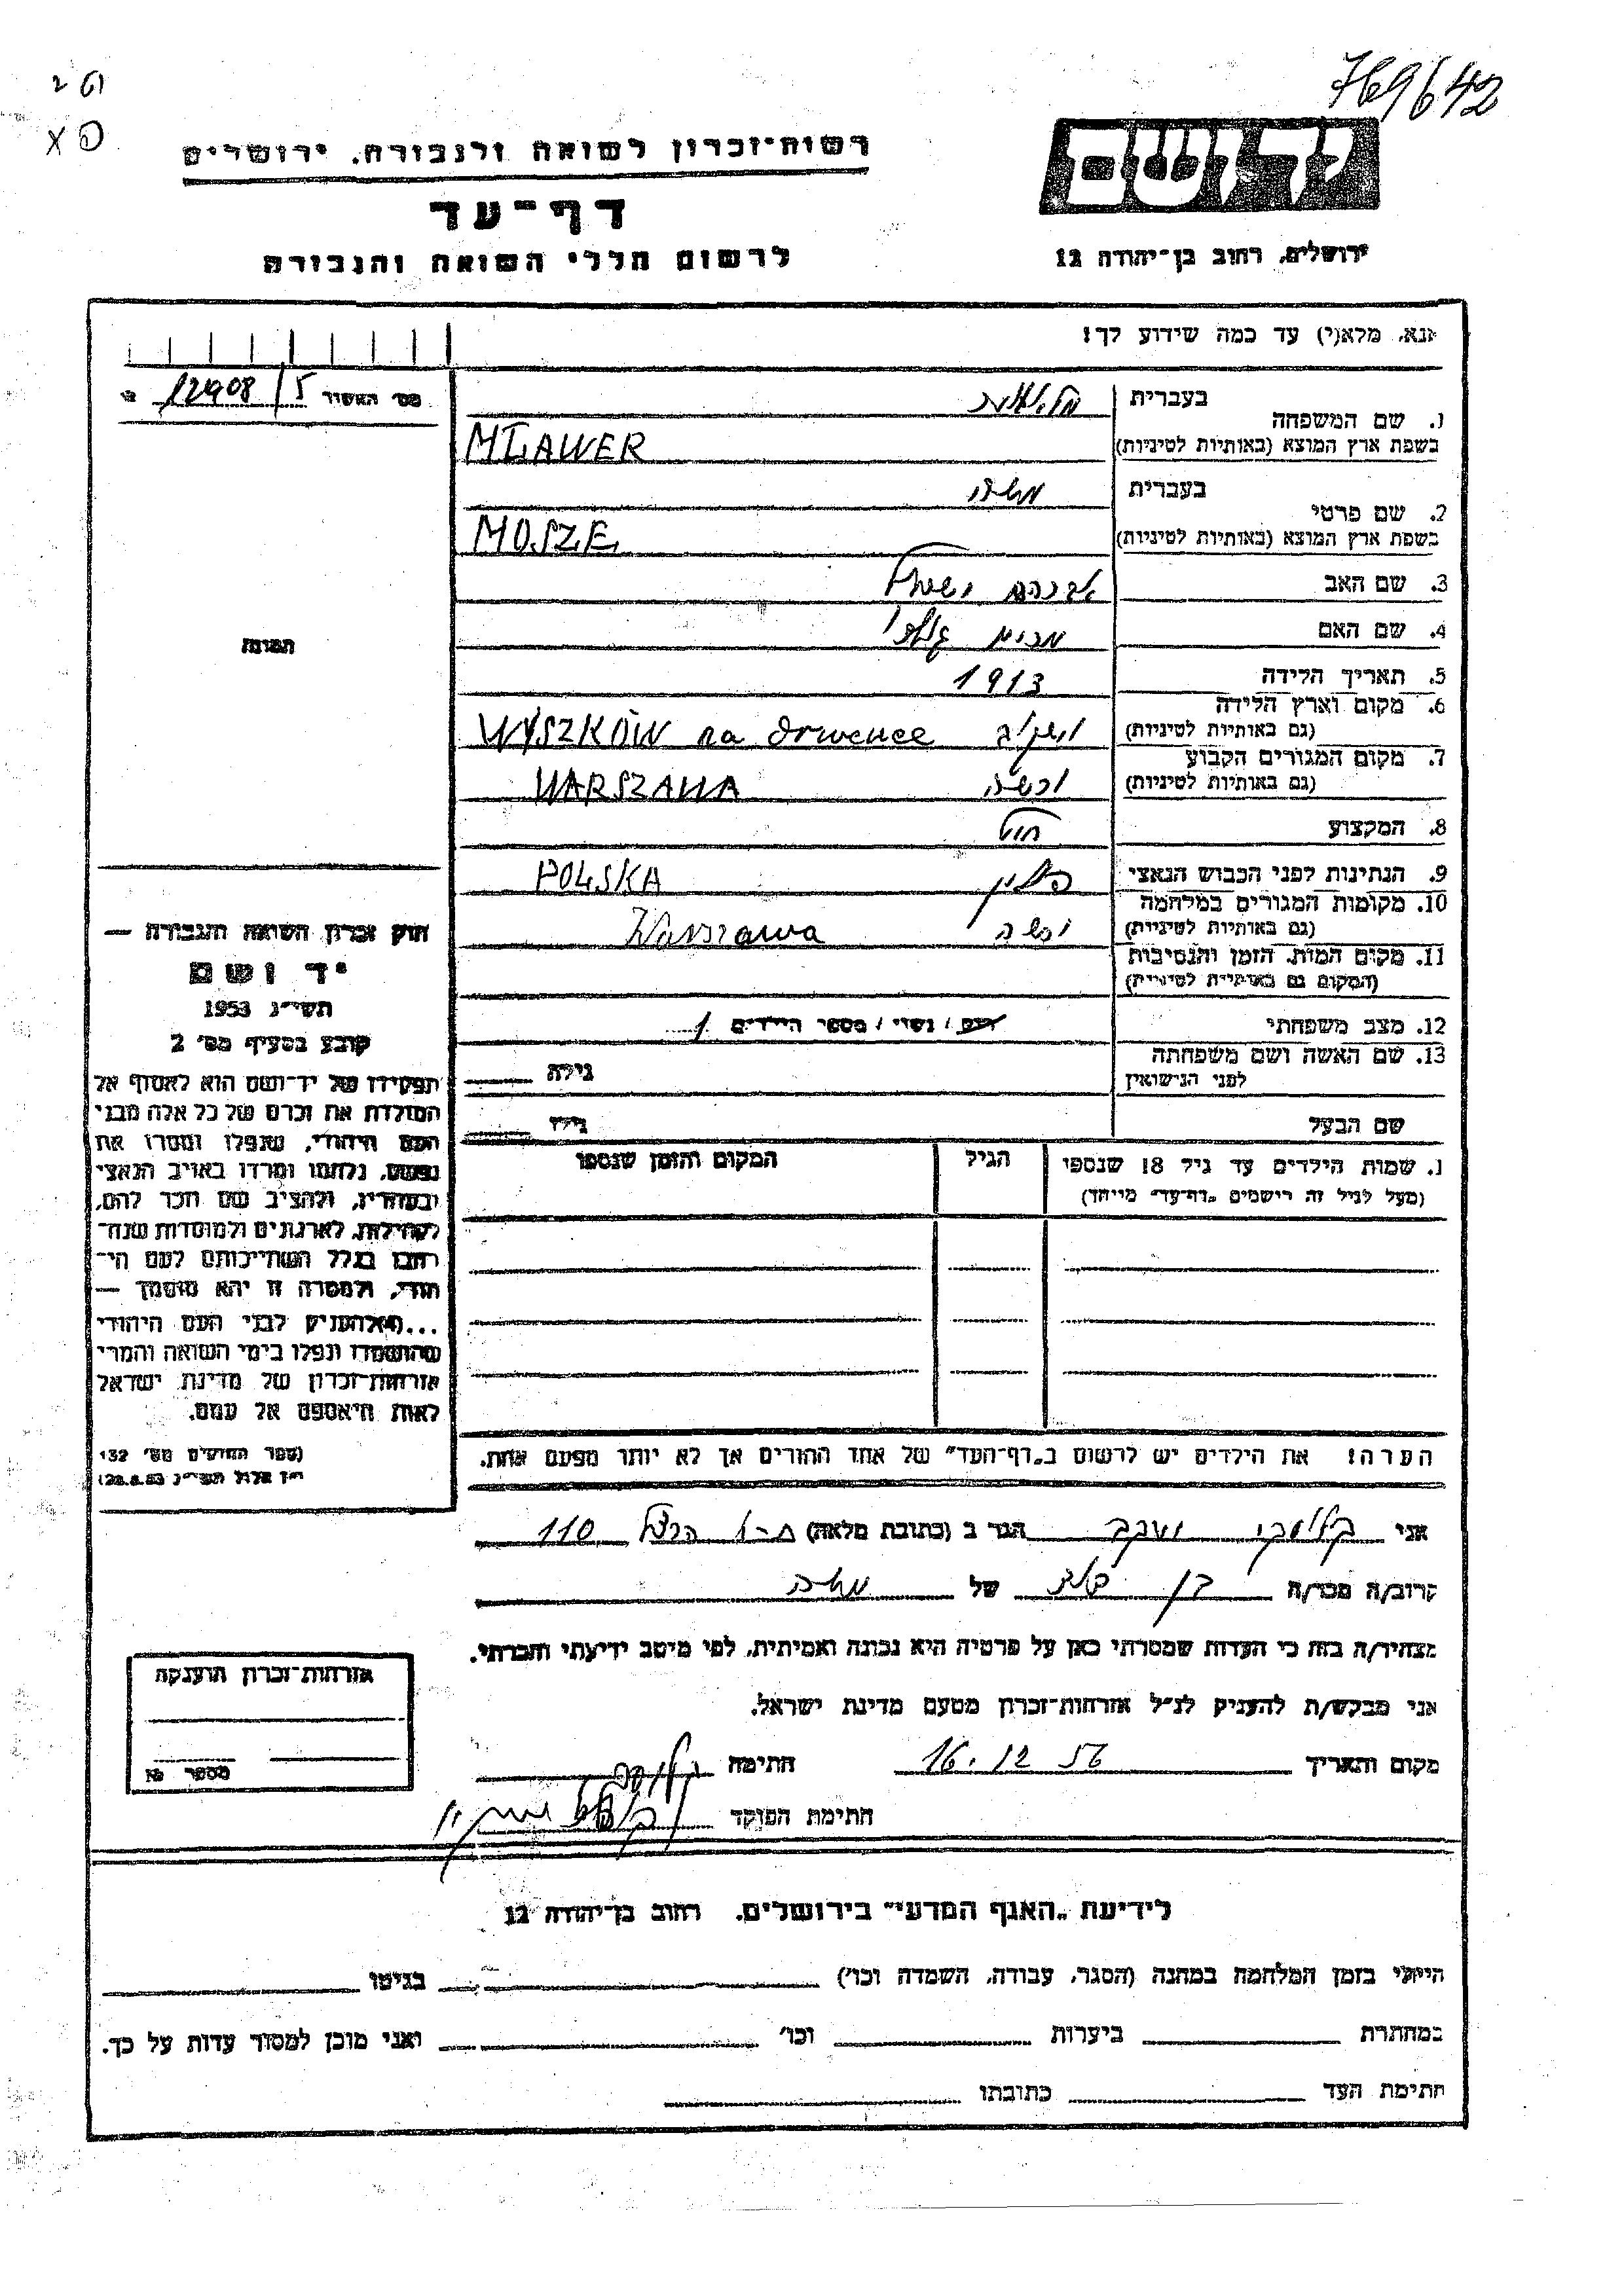 769642
יד ושם
רשות־זכרון לשואה ולגבורה, ירושלים
דף־עד
לרשום חללי השואה והגבורה
ירושלים, רחוב בן־יהודה 12
אנא, מלא(י) עד כמה שידוע לך!
מס׳ האשור 12908/5
בעברית
1. שם המשפחה
בשפת ארץ המוצא (באותיות לטיניות) MŁAWER
בעברית משה
2. שם פרטי
בשפת ארץ המוצא (באותיות לטיניות) MOSZE
3. שם האב אברהם ישראל
4. שם האם מרים
5. תאריך הלידה 1913
6. מקום וארץ הלידה
(גם באותיות לטיניות) WYSZKÓW na drwence
7. מקום המגורים הקבוע
(גם באותיות לטיניות) ורשה WARSZAWA
8. המקצוע
9. הנתינות לפני הכבוש הנאצי פולין POLSKA
10. מקומות המגורים במלחמה
(גם באותיות לטיניות) ורשה Warszawa
11. מקום המות, הזמן והנסיבות
(המקום גם באותיות לטיניות)
12. מצב משפחתי רוק / נשוי / מספר הילדים 1
13. שם האשה ושם משפחתה
לפני הנישואין גילה
שם הבעל גילו
1. שמות הילדים עד גיל 18 שנספו הגיל המקום והזמן שנספו
(מעל לגיל זה רישמים „דף־עד״ מייחד)
הערה! את הילדים יש לרשום ב„דף־העד״ של אחד ההורים אך לא יותר מפעם אחת.
תמונה
חוק זכרון השואה והגבורה —
יד ושם
תשי״ג 1953
קובע בסעיף מס׳ 2
תפקידו של יד־ושם הוא לאסוף אל
המולדת את זכרם של כל אלה מבני
העם היהודי, שנפלו ומסרו את
נפשם, נלחמו ומרדו באויב הנאצי
ובעוזריו, ולהציב שם וזכר להם,
לקהילות, לארגונים ולמוסדות שנח־
רבו בגלל השתייכותם לעם הי־
הודי, ולמטרה זו יהא מוסמך —
...(4) להעניק לבני העם היהודי
שהושמדו ונפלו בימי השואה והמרי
אזרחות־זכרון של מדינת ישראל
לאות היאספם אל עמם.
(ספר החוקים מס׳ 132
י״ז אלול תשי״ג 28.8.53)
אני יעקב הגר ב (כתובת מלאה) ת-א הרצל 110
קרוב/ה מכר/ה בן דוד של משה
מצהיר/ה בזה כי העדות שמסרתי כאן על פרטיה היא נכונה ואמיתית, לפי מיטב ידיעתי והכרתי.
אני מבקש/ת להעניק לנ״ל אזרחות־זכרון מטעם מדינת ישראל.
מקום ותאריך 16.12.56 חתימה
חתימת הפוקד
אזרחות־זכרון הוענקה
מספר №
לידיעת „האגף המדעי״ בירושלים, רחוב בן־יהודה 12
הייתי בזמן המלחמה במחנה (הסגר, עבודה, השמדה וכו׳) בגיטו
במחתרת ביערות וכו׳ ואני מוכן למסור עדות על כך.
חתימת העד כתובתו